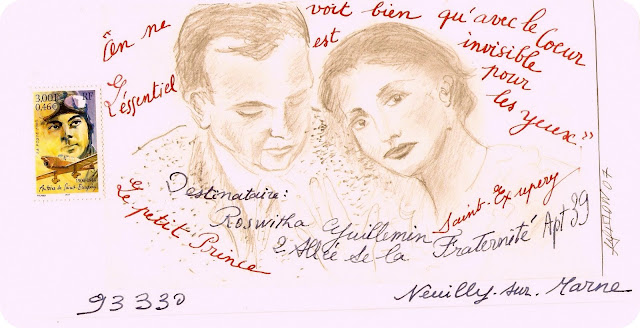 "On ne voit bien qu'avec le Coeur
L'essentiel est invisible
pour
les yeux."
3,00F RF
0,46€
Antoine de Saint-Exupéry
Saint-Exupery
Le petit Prince
Destinataire:
Roswitha Guillemin
2 Allée de la Fraternité Apt 39
93330 Neuilly-sur-Marne